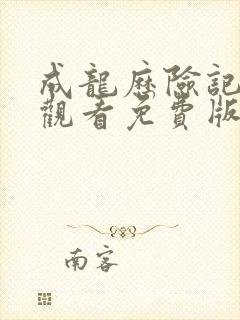 成龍歷險記
觀看免費版
南客